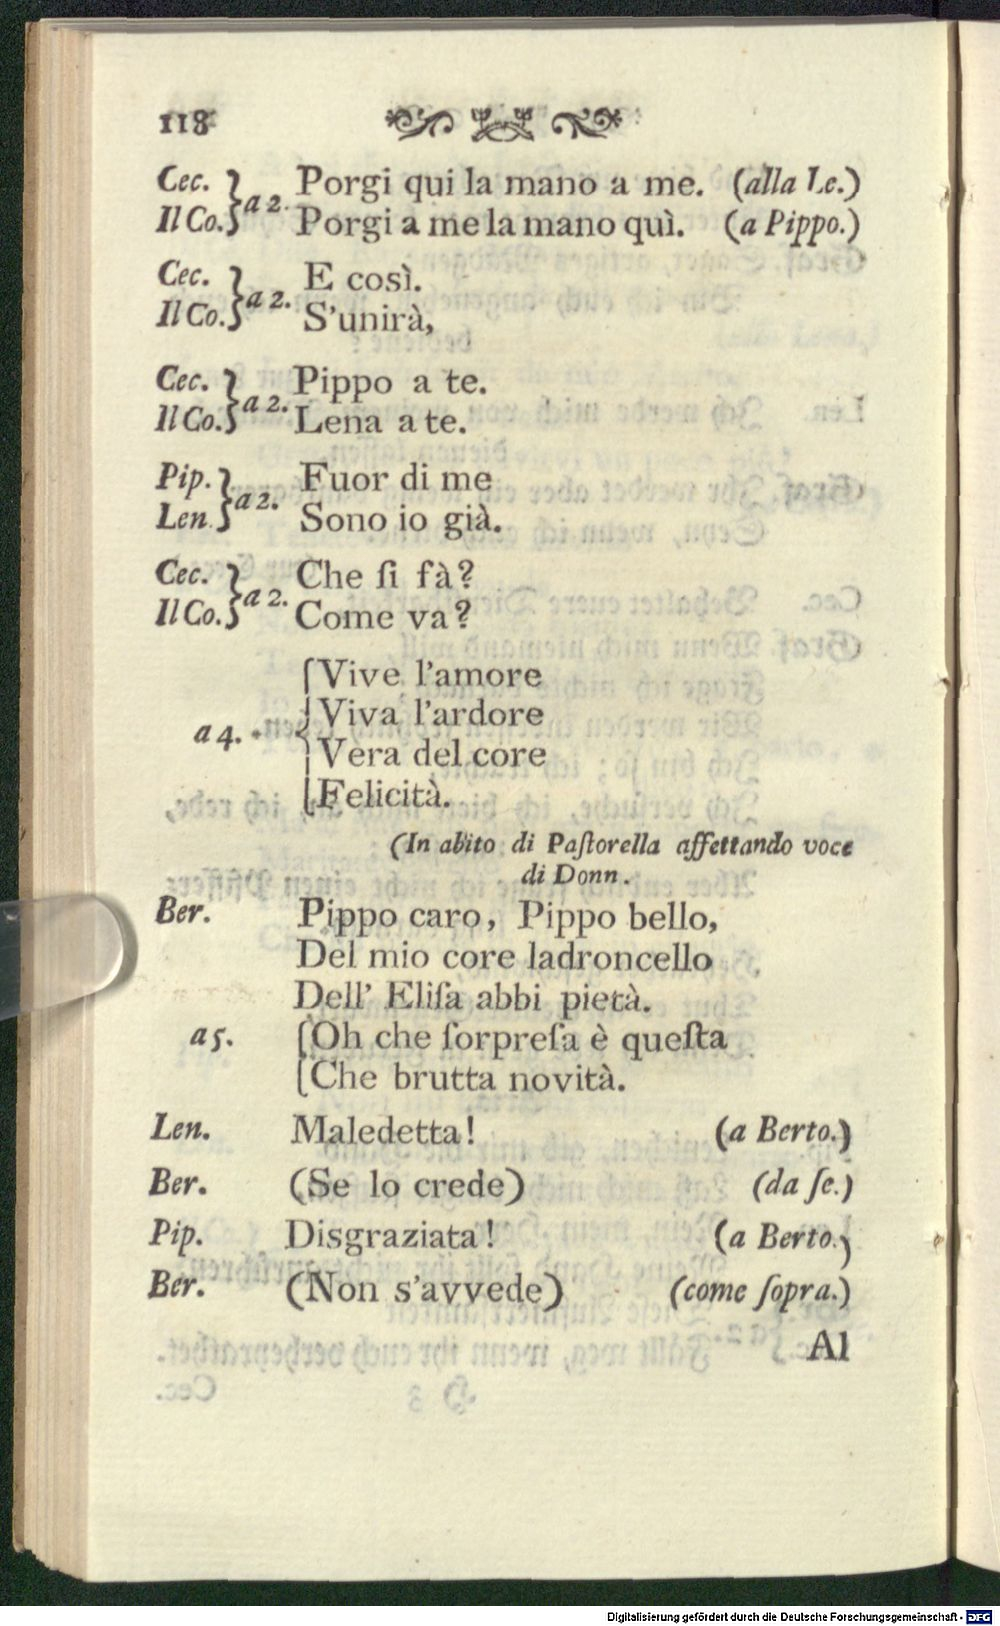 118
Cec. } a 2. Porgi qui la mano a me. (alla Le.)
Il Co. } Porgi a me la mano quì. (a Pippo.)
Cec. } a 2. E così.
Il Co. } S'unirà,
Cec. } a 2. Pippo a te.
Il Co. } Lena a te.
Pip. } a 2. Fuor di me
Len. } Sono io già.
Cec. } a 2. Che ſi fà?
Il Co. } Come va?
{ Vive l'amore
a 4. { Viva l'ardore
{ Vera del core
{ Felicità.
(In abito di Paſtorella affettando voce
di Donn.
Ber. Pippo caro, Pippo bello,
Del mio core ladroncello
Dell' Eliſa abbi pietà.
a 5. { Oh che ſorpreſa è queſta
{ Che brutta novità.
Len. Maledetta! (a Berto.)
Ber. (Se lo crede) (da ſe.)
Pip. Disgraziata! (a Berto.)
Ber. (Non s'avvede) (come ſopra.)
Al
Digitalisierung gefördert durch die Deutsche Forschungsgemeinschaft - DFG